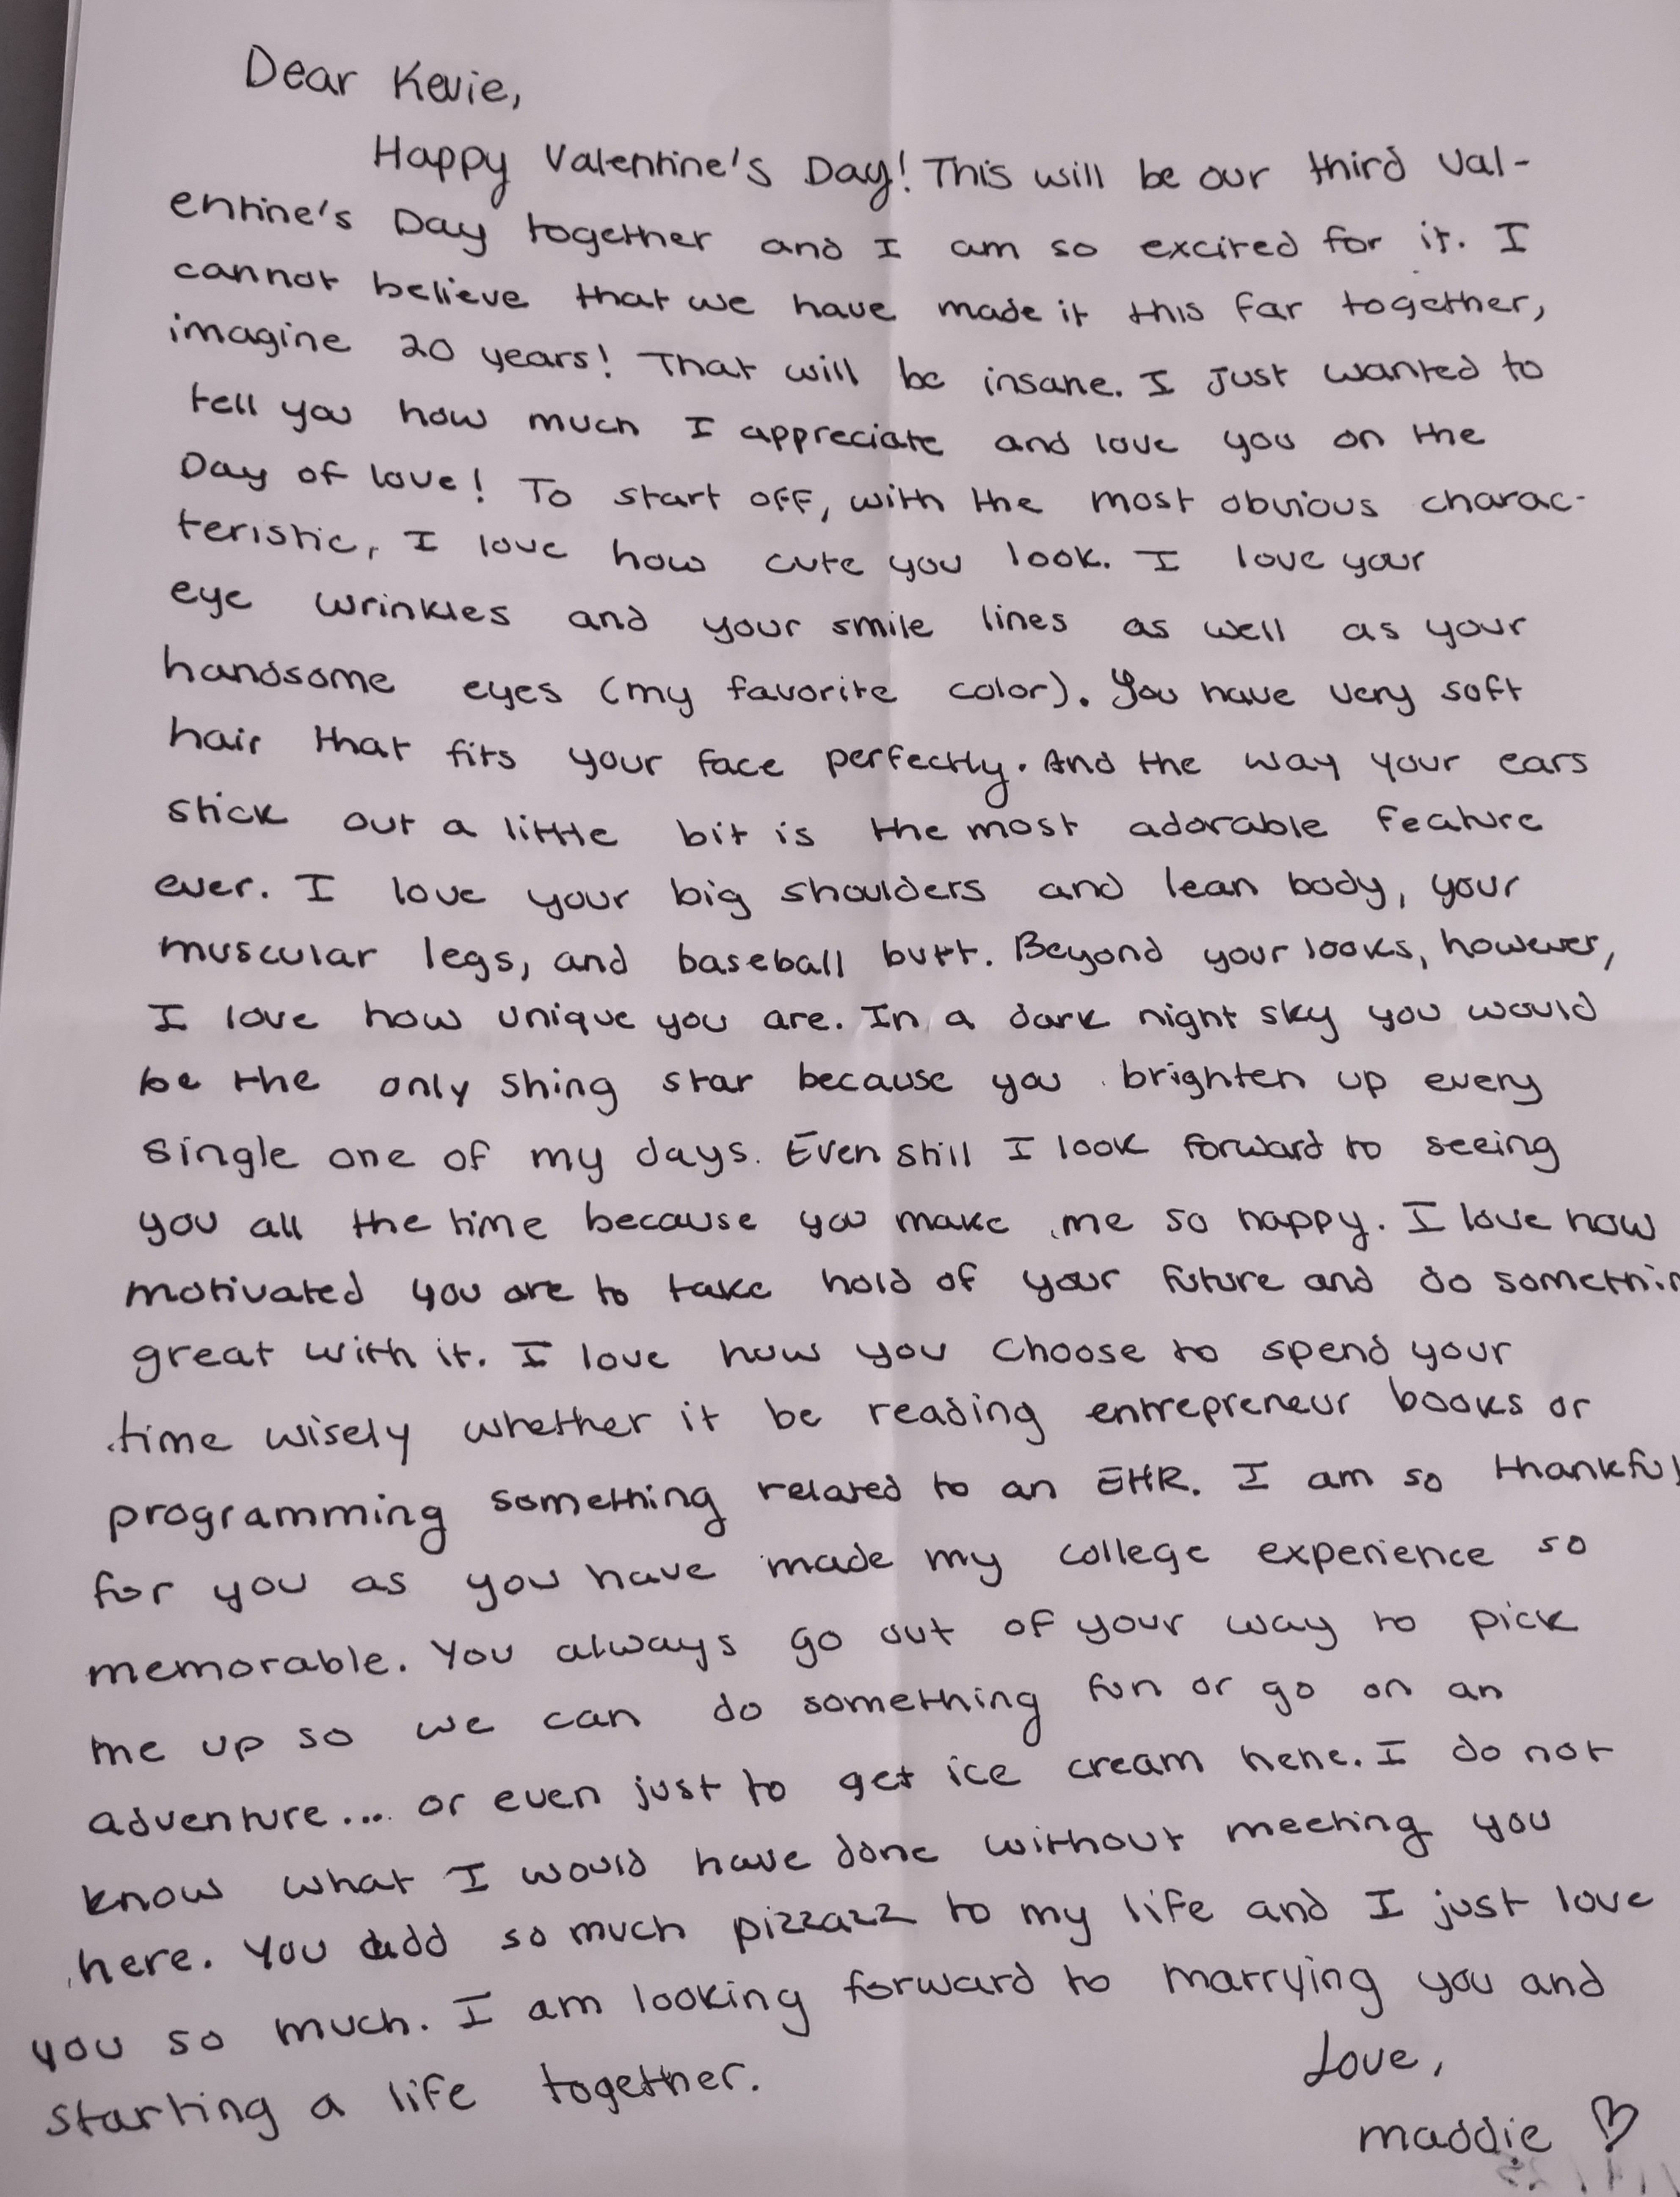 Dear Kevie,
Happy Valentine's Day! This will be our third Val-
entine's Day together and I am so excited for it. I
cannot believe that we have made it this far together,
imagine 20 years! That will be insane. I just wanted to
tell you how much I appreciate and love you on the
Day of love! To start off, with the most obvious charac-
teristic, I love how cute you look. I love your
eye wrinkles and your smile lines as well as your
handsome eyes (my favorite color). You have very soft
hair that fits your face perfectly. And the way your ears
stick out a little bit is the most adorable feature
ever. I love your big shoulders and lean body, your
muscular legs, and baseball butt. Beyond your looks, however,
I love how unique you are. In a dark night sky you would
be the only shing star because you brighten up every
single one of my days. Even still I look forward to seeing
you all the time because you make me so happy. I love how
motivated you are to take hold of your future and do somethin
great with it. I love how you choose to spend your
time wisely whether it be reading entrepreneur books or
programming something related to an EHR. I am so thankful
for you as you have made my college experience so
memorable. You always go out of your way to pick
me up so we can do something fun or go on an
adventure.... or even just to get ice cream hehe. I do not
know what I would have done without meeting you
here. You add so much pizzazz to my life and I just love
you so much. I am looking forward to marrying you and
starting a life together.
Love,
maddie ♡